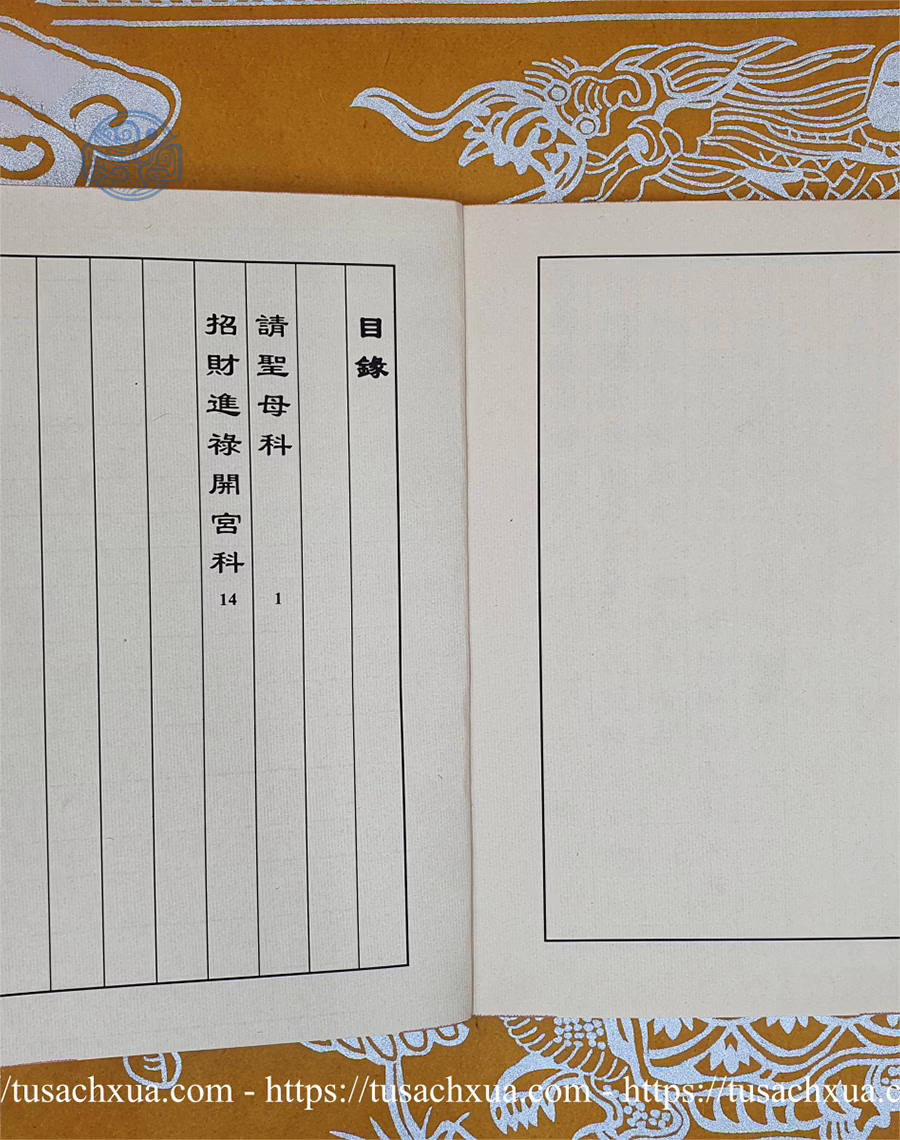 目錄
請聖母科 1
招財進祿開宮科 14
/tusachxua.com - https://tusachxua.com - https://tusachxua.c